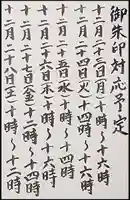 御朱印対応予定
十二月二十三日(月)十時〜十六時
十二月二十四日(火)十時〜十六時
十二月二十五日(水)十時〜十四時
十二月二十六日(木)十時〜十四時
十二月二十七日(金)十時〜十四時
十二月二十八日(土)十時〜十二時